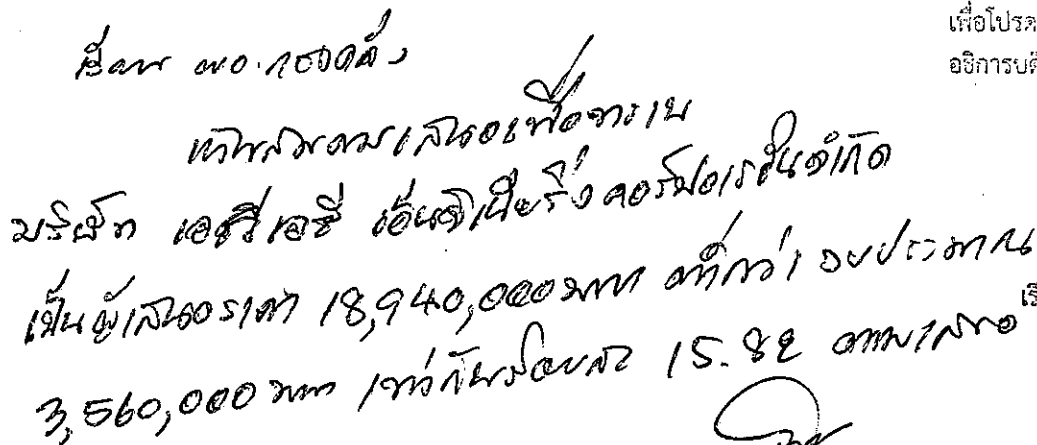 เพื่อโปรด
อธิการบดี
เรียน ผอ.กองคลัง
เห็นสมควรเสนอเพื่อทราบ
บริษัท เอชวีเอซี เอ็นจิเนียริ่ง คอร์ปอเรชั่น จำกัด
เป็นผู้เสนอราคา 18,940,000 บาท ต่ำกว่างบประมาณ
3,560,000 บาท เท่ากับร้อยละ 15.82 ตามเสนอ
เรี